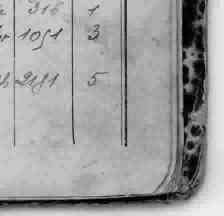 316 1
r 1091 3
h 2191 5